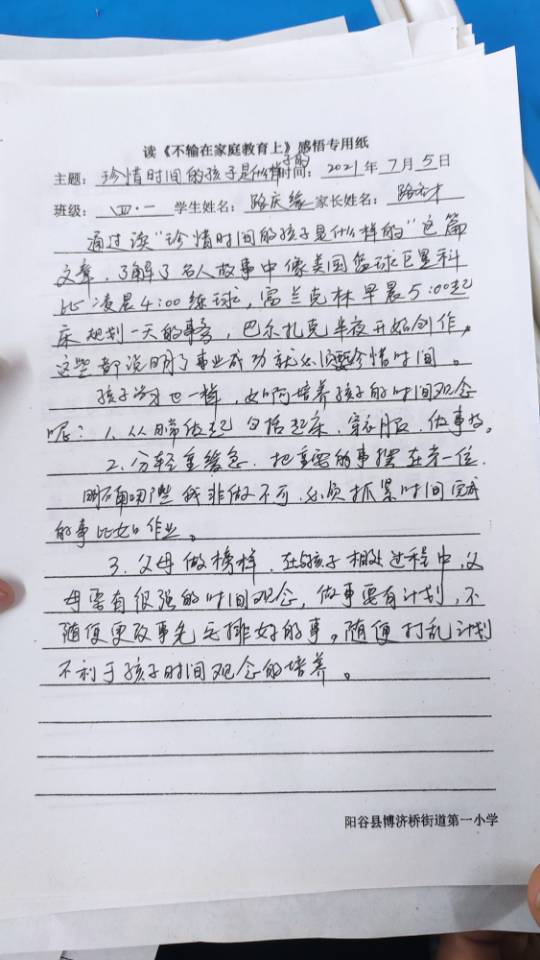 读《不输在家庭教育上》感悟专用纸
主题: 珍惜时间的孩子是什么样子的 时间: 2021年 7月 5日
班级: 四·一 学生姓名: 路庆缘 家长姓名:
通过读“珍惜时间的孩子是什么样的”这篇
文章,了解了名人故事中像美国篮球巨星科
比凌晨4:00练球,富兰克林早晨5:00起
床规划一天的事务,巴尔扎克半夜开始创作,
这些都说明了事业成功就必须要珍惜时间。
孩子学习也一样,如何培养孩子的时间观念
呢?1.从小做起 包括起床、穿衣服、做事等。
2.分轻重缓急.把重要的事摆在第一位.
明确哪些我非做不可,必须抓紧时间完成
的事比如作业。
3.父母做榜样.在与孩子相处过程中,父
母需有很强的时间观念,做事要有计划,不
随便更改事先安排好的事。随便打乱计划
不利于孩子时间观念的培养。
阳谷县博济桥街道第一小学